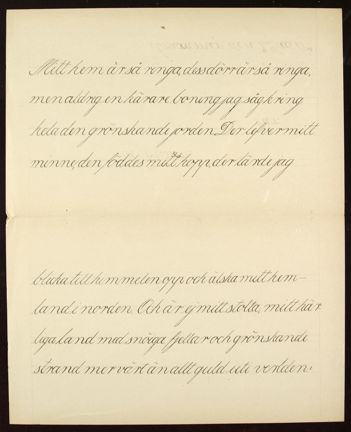 Mitt hem är så ringa, dess dörr är så ringa,
men aldrig en kärare boning jag såg kring
hela den grönskande jorden. Der lefver mitt
minne, den föddes mitt hopp, der lärde jag
blicka till himmelen opp och älska mitt hem-
land i norden. Och är ej mitt stolta, mitt här
liga land med snöiga fjellar och grönskande
strand mer värt än allt guld i verlden.